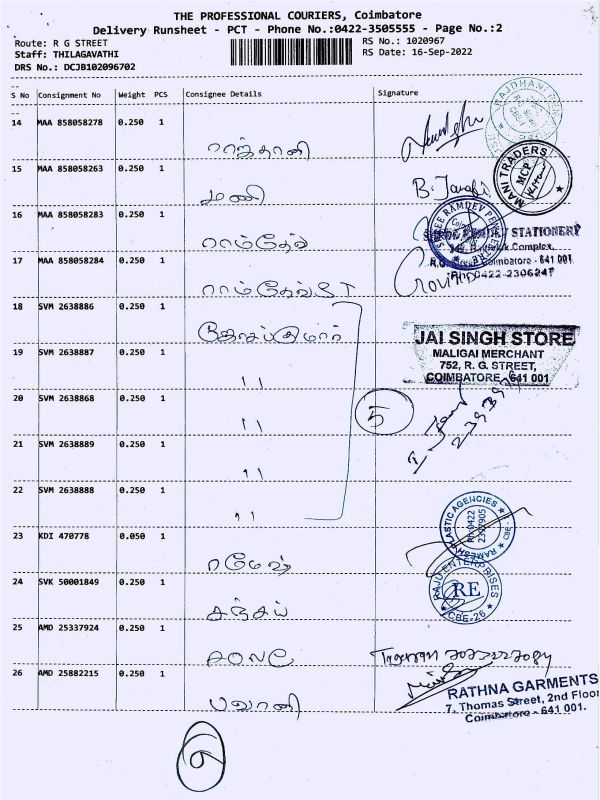 THE PROFESSIONAL COURIERS, Coimbatore
Delivery Runsheet - PCT - Phone No.:0422-3505555 - Page No.:2
Route: R G STREET RS No.: 1020967
Staff: THILAGAVATHI RS Date: 16-Sep-2022
DRS No.: DCJB102096702
S No Consignment No Weight PCS Consignee Details Signature
14 MAA 858058278 0.250 1
ராஜ்தானி
15 MAA 858058263 0.250 1
மணி
MANI TRADERS
B.
16 MAA 858058283 0.250 1
ராம்தேவ்
SHREE RAMDEV STATIONERY
Complex,
Coimbatore - 641 001
Ph: 0422-2306247
17 MAA 858058284 0.250 1
ராம்தேவ் ST
18 SVM 2638886 0.250 1
JAI SINGH STORE
MALIGAI MERCHANT
752, R. G. STREET,
COIMBATORE - 641 001
19 SVM 2638887 0.250 1
11
20 SVM 2638868 0.250 1
11
5
21 SVM 2638889 0.250 1
11
22 SVM 2638888 0.250 1
11
RAMESH PLASTIC AGENCIES
PH:0422
2397905
CBE -
23 KDI 470778 0.050 1
ரமேஷ்
RAJU ENTERPRISES
RE
CBE-26
24 SVK 50001849 0.250 1
சஞ்சய்
25 AMD 25337924 0.250 1
26 AMD 25882215 0.250 1
பவானி
RATHNA GARMENTS
7, Thomas Street, 2nd Floor
Coimbatore - 641 001.